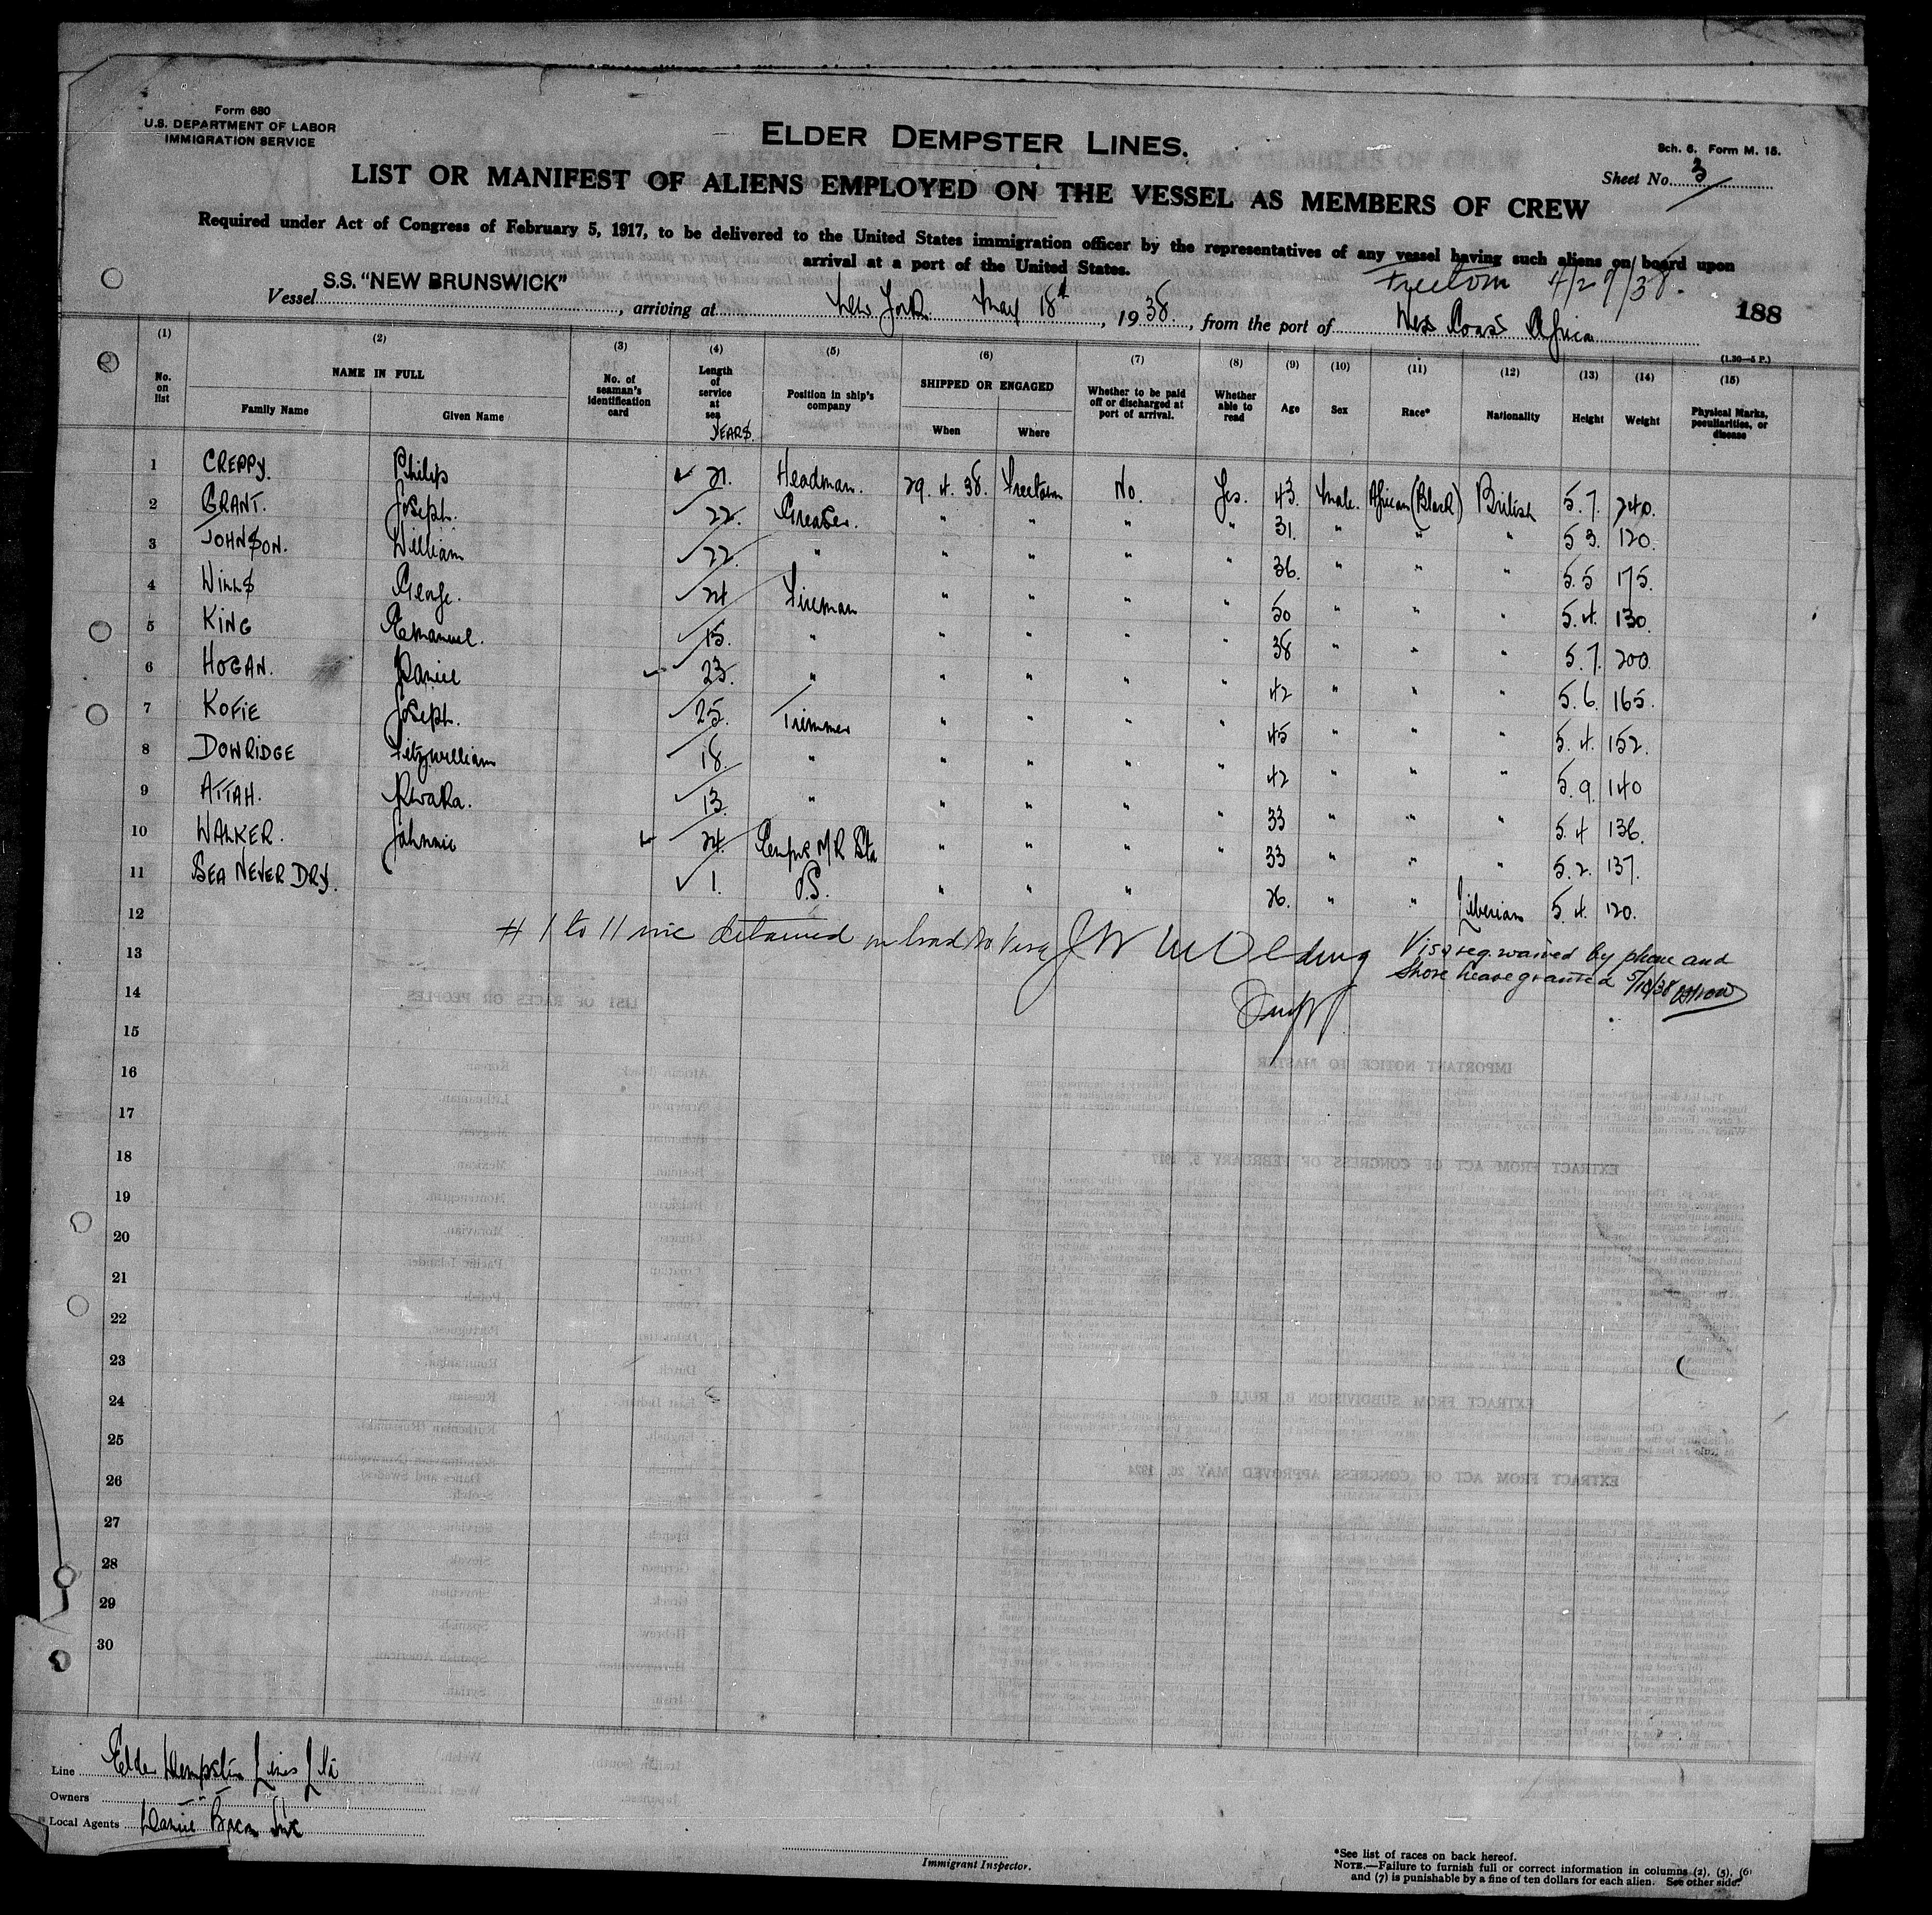 Form 680
U.S. DEPARTMENT OF LABOR
IMMIGRATION SERVICE
ELDER DEMPSTER LINES.
Sch. 6. Form M. 15.
Sheet No. 3
LIST OR MANIFEST OF ALIENS EMPLOYED ON THE VESSEL AS MEMBERS OF CREW
Required under Act of Congress of February 5, 1917, to be delivered to the United States immigration officer by the representatives of any vessel having such aliens on board upon
arrival at a port of the United States.
Freetown 4/29/38.
188
Vessel S.S. "NEW BRUNSWICK", arriving at New York May 18th, 1938, from the port of West Coast Africa
(1.30—5 P.)
(1) (2) (3) (4) (5) (6) (7) (8) (9) (10) (11) (12) (13) (14) (15)
No. on list NAME IN FULL Family Name Given Name No. of seaman's identification card Length of service at sea YEARS. Position in ship's company SHIPPED OR ENGAGED When Where Whether to be paid off or discharged at port of arrival. Whether able to read Age Sex Race* Nationality Height Weight Physical Marks, peculiarities, or disease
1 CREPPY. Philip ✓ 21. Headman. 29. 4. 38. Freetown No. Yes. 43. Male. African (Black) British 5. 7. 240.
2 GRANT. Joseph. ✓ 22. Greaser. " " " " 31. " " " 5 3. 120.
3 JOHNSON. William ✓ 22. " " " " " 36. " " " 5.5 175.
4 WILLS George. ✓ 24 Fireman " " " " 50 " " " 5.4. 130.
5 KING Emanuel. ✓ 15. " " " " " 38 " " " 5.7. 200.
6 HOGAN. Daniel ✓ 23. " " " " " 42 " " " 5.6. 165.
7 KOFIE Joseph. ✓ 25. Trimmer " " " " 45 " " " 5.4. 152.
8 DOWRIDGE Fitzwilliam ✓ 18. " " " " " 42 " " " 5.9. 140
9 ATTAH. Kwaka. ✓ 13. " " " " " 33 " " " 5.4 136.
10 WALKER. Johnnie ✓ 24. " " " " 33 " " " 5.2. 137.
11 SEA NEVER DRY. ✓ 1. P.S. " " " 26. " " Liberian 5.4. 120.
12
# 1 to 11 inc detained on board no visa
13
Visa req. waived by phone and
Shore leave granted 5/18/38
14
15
16
17
18
19
20
21
22
23
24
25
26
27
28
29
30
Line Elder Dempster Lines Ltd
Owners "
Local Agents Daniel Bacon Inc
Immigrant Inspector.
*See list of races on back hereof.
NOTE.—Failure to furnish full or correct information in columns (2), (5), (6)
and (7) is punishable by a fine of ten dollars for each alien. See other side.